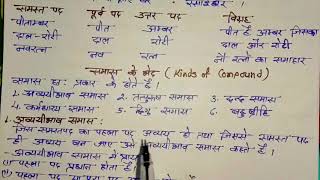 समस्त पद पूर्व पद उत्तर पद विग्रह
पीताम्बर पीत अम्बर पीत है अम्बर जिसका
दाल-रोटी दाल रोटी दाल और रोटी
नवरत्न नव रत्न नौ रत्नों का समाहार
समास के भेद (Kinds of Compound)
समास छः प्रकार के होते हैं।
1. अव्ययीभाव समास 2. तत्पुरुष समास 3. द्वन्द्व समास
4. कर्मधारय समास 5. द्विगु समास 6. बहुव्रीहि
1. अव्ययीभाव समास :
जिस समस्तपद का पहला पद अव्यय हो तथा जिससे समस्त पद
ही अव्यय बन जाए उसे अव्ययीभाव समास कहते हैं।
अव्ययीभाव समास में
(i) पहला पद प्रधान होता है।
(ii) पहला पद या पूरा पद